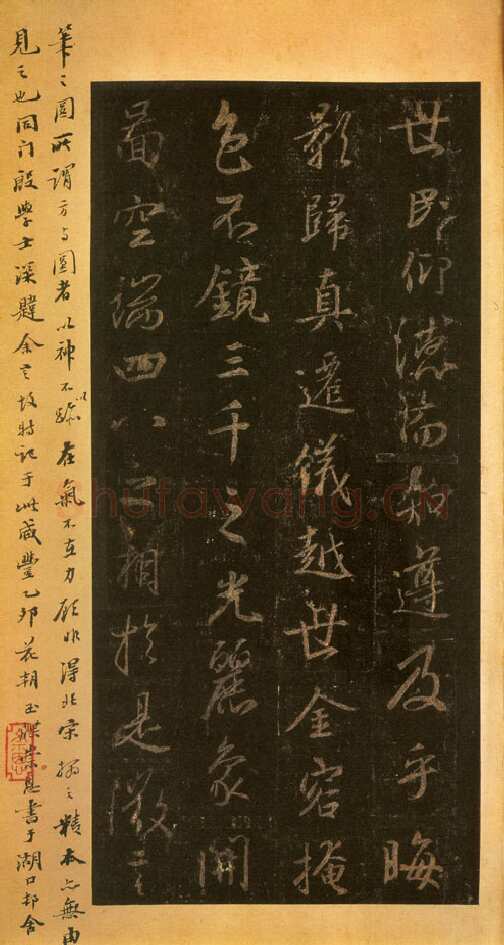 世民仰德而知遵及乎晦
影歸真遷儀越世金容掩
色不鏡三千之光麗象開
啚空端四八之相於是微言
筆之圓所謂方与圓者以神不以跡在氣不在力顧非得北宋搨之精本亦無由
見之也同门殷學士深韙余言故特記于此咸豐乙卯花朝玉牒崇恩書于湖口邨舍
Shufawang.cn